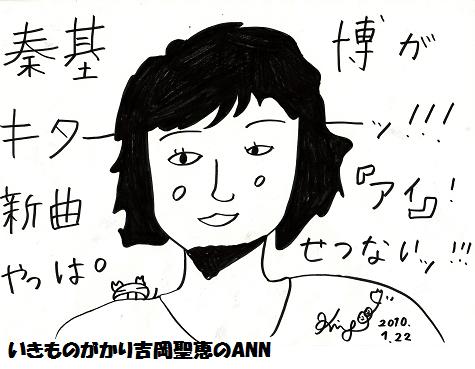 秦基博が
キターーッ!!!
新曲『アイ』!
やっぱ。せつないッ!!!
King
2010.
1.22
いきものがかり吉岡聖恵のANN